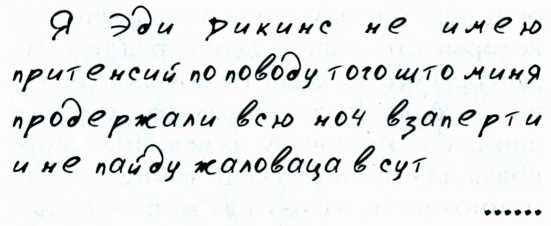 Я Эди Рикинс не имею
притенсий по поводу того што миня
продержали всю ноч взаперти
и не пайду жаловаца в сут
......